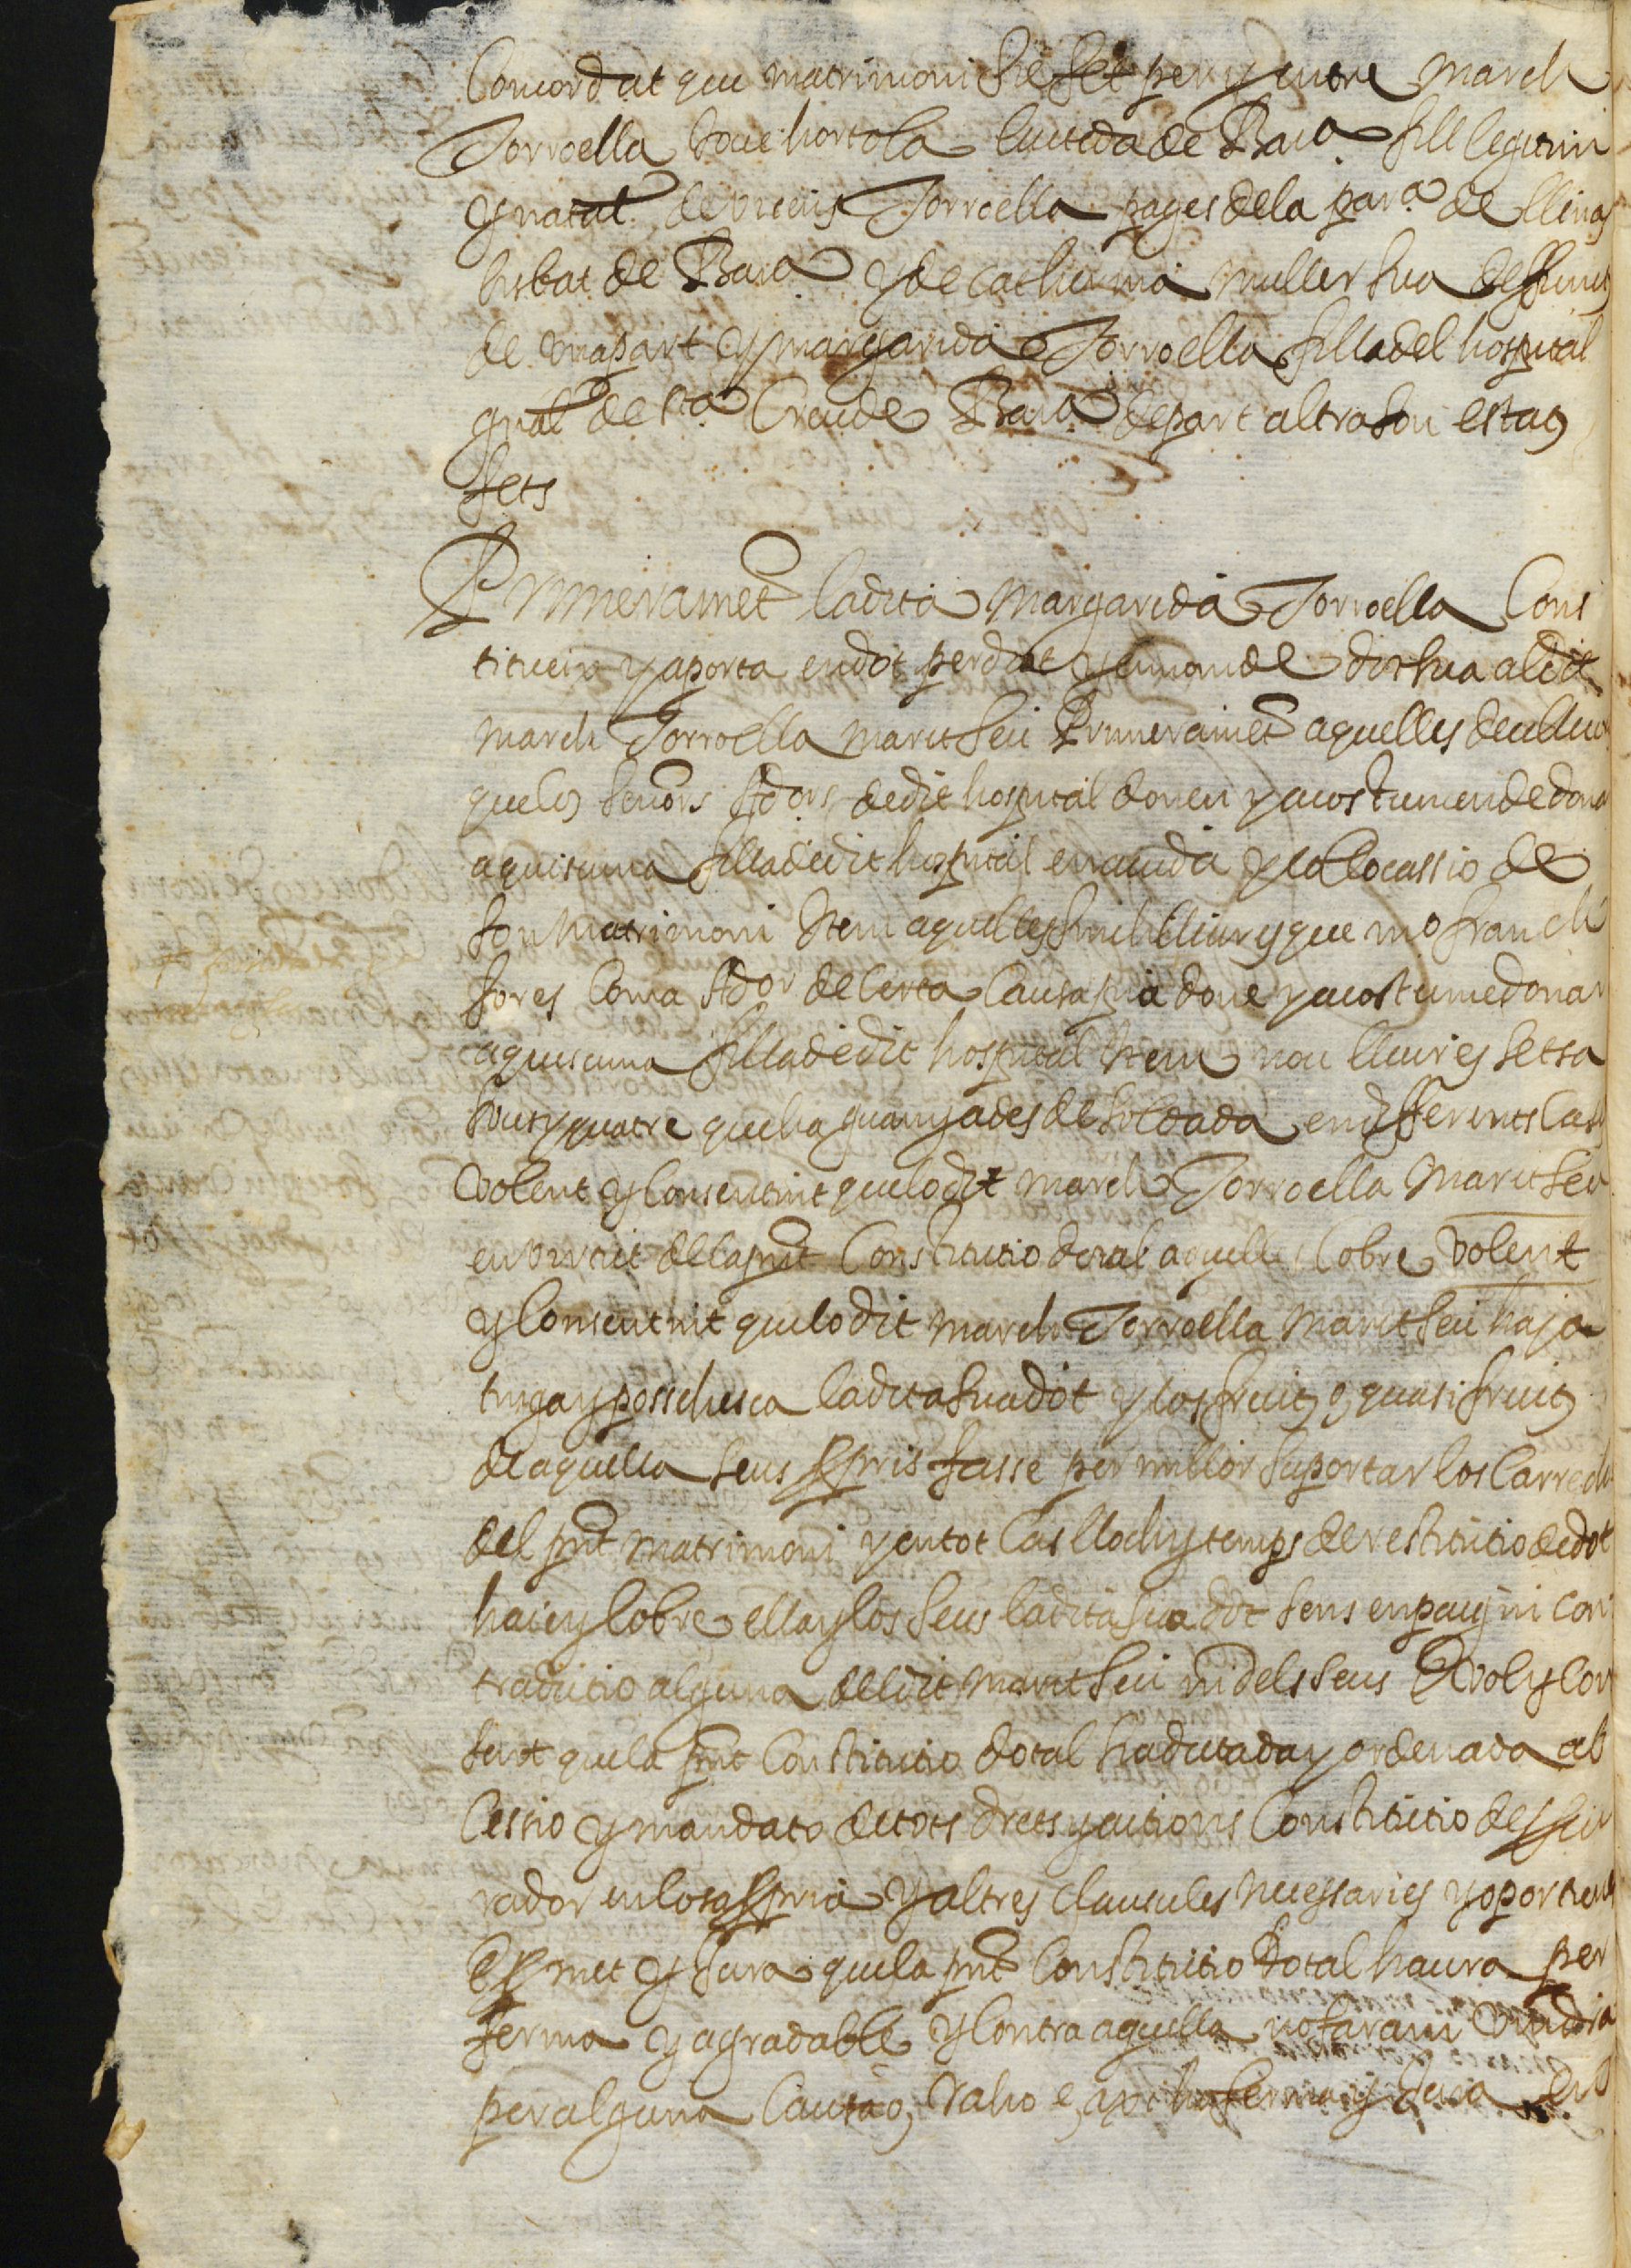 Concordat que matrimoni sie fet per y entre March
Torroella Jove hortola ciuteda de Bar.a fill legitim
y natal de vicens Torroella pages dela par.a de llinas
bisbat de Bar.a y de catherina muller sua deffuncts
de una part y margarida Torroella filla del hospital
gnal de s.ta Creu de Bar.a de part altra son estats
fets
Primeramet la dita Margarida Torroella Cons
titueix y aporta en dot per dot y en nom de dot sua al dit
march Torroella marit seu Primeramet aquelles deu lliures
que los senors Ad.ors de dit hospital donen y acostumen de donar
a quiscuna filla de dit hospital en aiuda y colocassio de
son matrimoni Item aquelles sinch lliures que m.o franch
fores Com a Ad.or de Certa Causa pia done y acostume donar
a quiscuna filla de dit hospital Item nou lliures setsa
sous y quatre que ha guanyades de soldada en differents Cases
Volent y Consentint que lo dit march Torroella Marit seu
en virtut de la pnt Constitutio dotal aquelles Cobre Volent
y Consentint que lo dit march Torroella Marit seu haja
tinga y possehesca la dita sua dot y los fruits y quasi fruits
de aquella seus propris fasse per millor suportar los Carrechs
del pnt matrimoni y en tot Cas lloch y temps de restitutio de dot
haie y Cobre ella y los seus la dita sua dot sens enpaig ni con
tradictio alguna del dit marit seu ni dels seus E vol y Con
sent que la pnt Constitutio dotal sia dictada y ordenada ab
Cessio y mandato de tots drets y actions Constitutio de procu
rador en cosa propria y altres clausules necessaries y oportunes
E promet y Jura que la pnt Constitutio Dotal haura per
ferma y agradable y Contra aquella no fara ni vindra
per alguna Causa o, Raho e, axi ho ferma y Jura